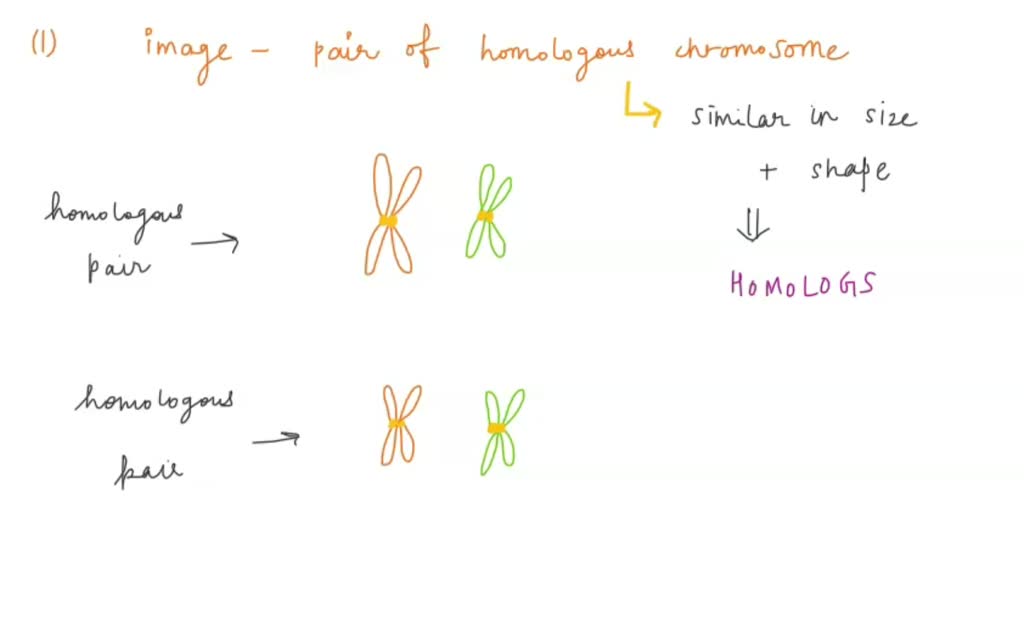 (1) image - pair of homologous chromosome
↳ similar in size
+ shape
⇓
homologous
pair →
HOMOLOGS
homologous
pair →